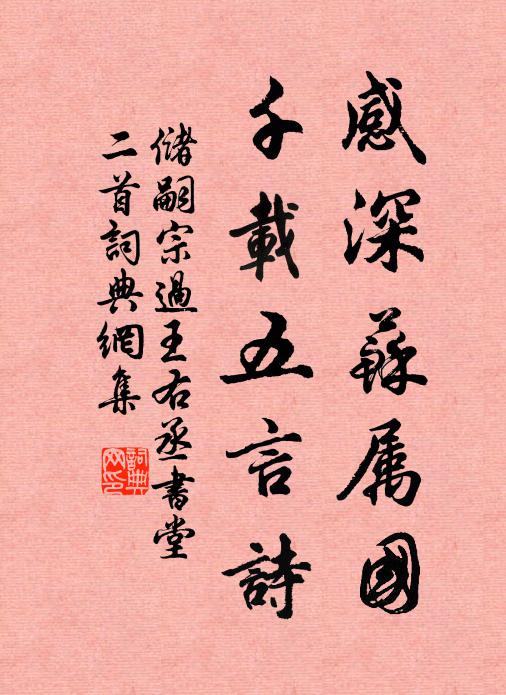 感深蘇属國
千載五言詩
儲嗣宗過王右丞書堂
二首詞典網集
詞典網印